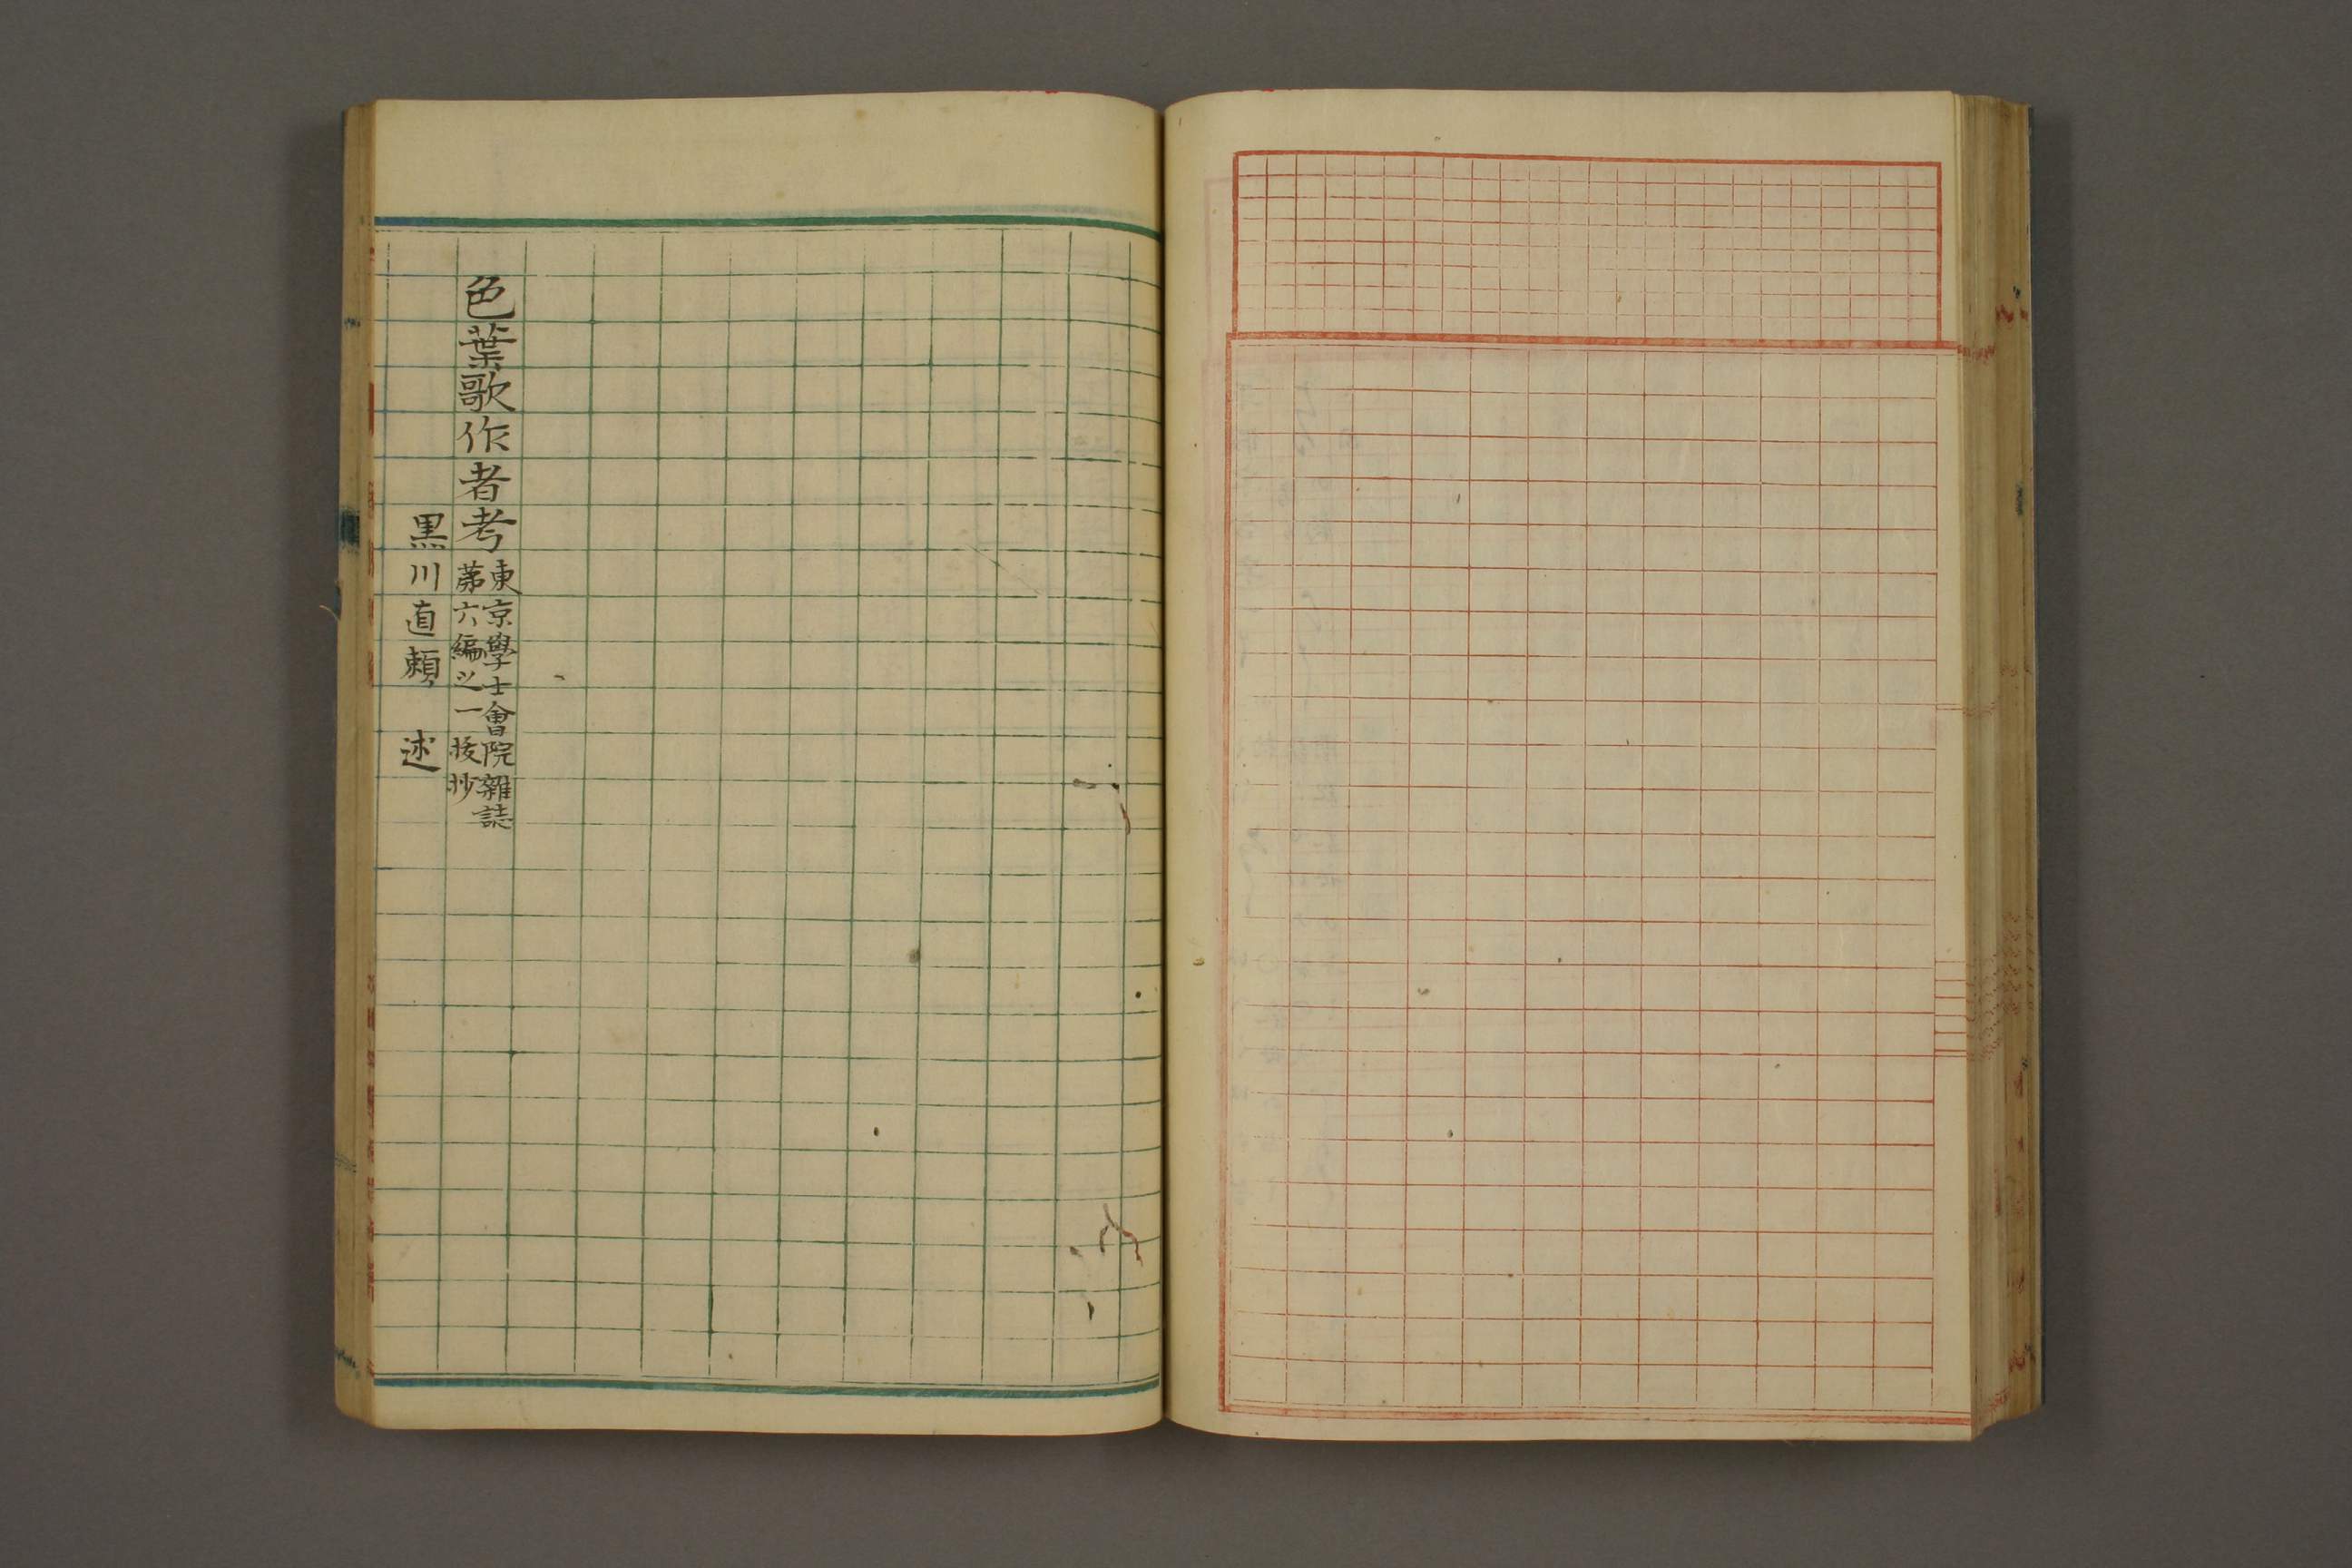 色葉歌作者考
東京學士會院雜誌
第六編之一抜抄
黒川直頼 述